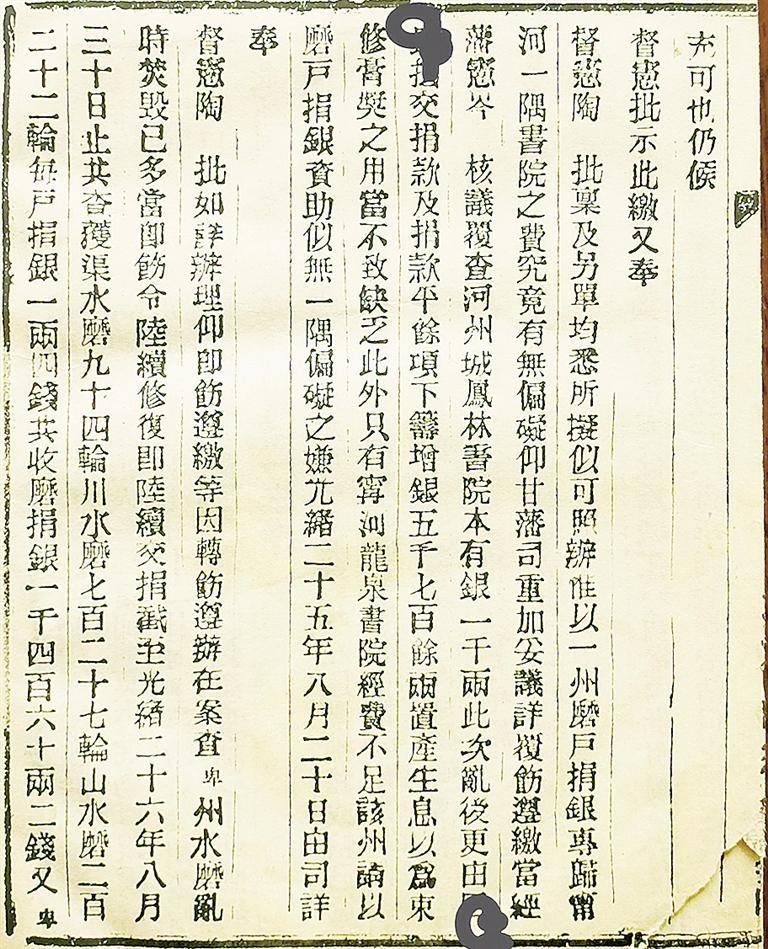 充可也仍候
督憲批示此繳又奉
督憲陶　批稟及另單均悉所擬似可照辦惟以一州磨戶捐銀專歸甯
河一隅書院之費究竟有無偏礙仰甘藩司重加妥議詳覆飭遵繳當經
藩憲岑　核議覆查河州城鳳林書院本有銀一千兩此次亂後更由
交捐款及捐款平餘項下籌增銀五千七百餘兩置產生息以爲束
修膏獎之用當不致缺乏此外只有寗河龍泉書院經費不足該州請以
磨戶捐銀資助似無一隅偏礙之嫌光緒二十五年八月二十日由司詳
奉
督憲陶　批如詳辦理仰卽飭遵繳等因轉飭遵辦在案查卑州水磨亂
時焚毀已多當卽飭令陸續修復卽陸續交捐截至光緒二十六年八月
三十日止共查獲渠水磨九十四輪川水磨七百二十七輪山水磨二百
二十二輪每戶捐銀一兩四錢共收磨捐銀一千四百六十兩二錢又卑